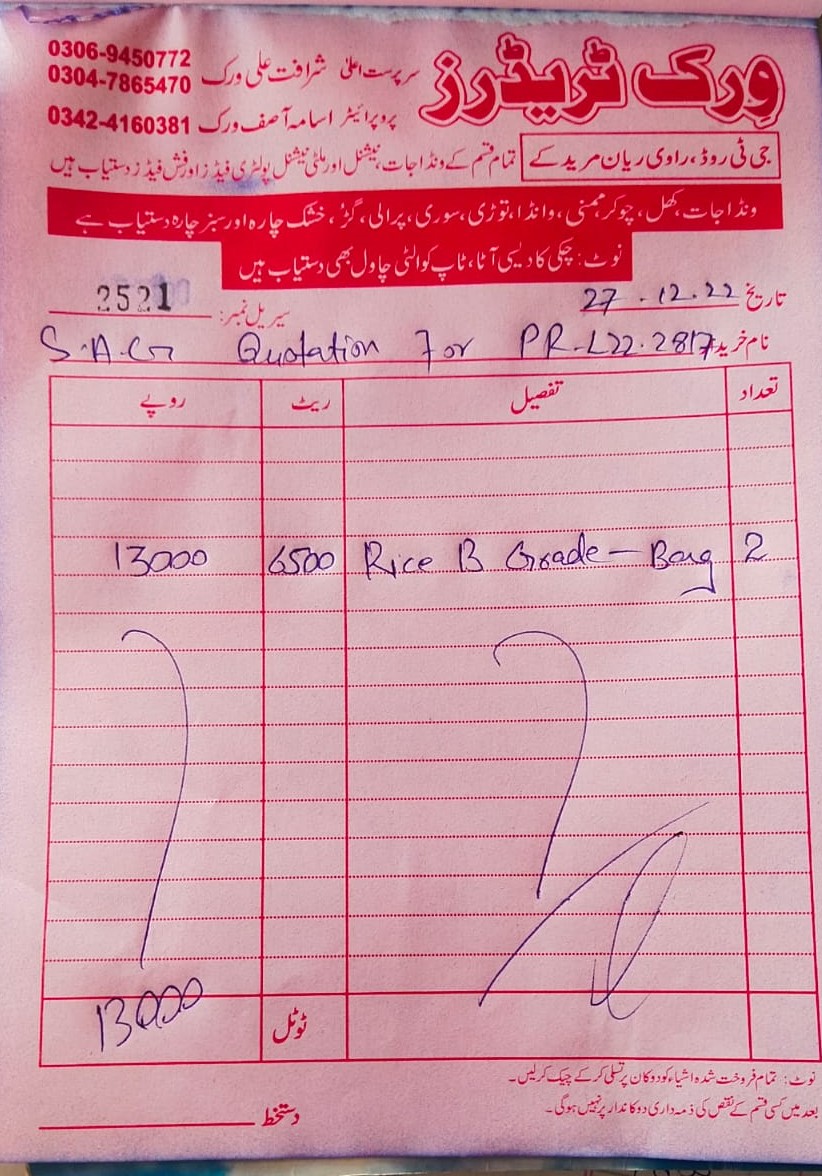 ورک ٹریڈرز
سرپرست اعلیٰ شرافت علی ورک 0306-9450772
0304-7865470
پروپرائیٹر اسامہ آصف ورک 0342-4160381
جی ٹی روڈ، راوی ریان مرید کے
تمام قسم کے ونڈا جات، نیشنل اور ملٹی نیشنل پولٹری فیڈز اور فش فیڈز دستیاب ہیں
ونڈا جات، کھل، چوکر، ممنی، وانڈا، توڑی، سوری، پرالی، گڑ، خشک چارہ اور سبز چارہ دستیاب ہے
نوٹ: چکی کا دیسی آٹا، ٹاپ کوالٹی چاول بھی دستیاب ہیں
تاریخ 27.12.22 سیریل نمبر: 2521
نام خریدار S.A.G Quotation For PR-L22.2817
تعداد تفصیل ریٹ روپے
2 Rice B Grade - Bag 6500 13000
ٹوٹل 13000
نوٹ: تمام فروخت شدہ اشیاء کو دوکان پر تسلی کر کے چیک کر لیں۔
بعد میں کسی قسم کے نقص کی ذمہ داری دوکاندار پر نہیں ہوگی۔
دستخط